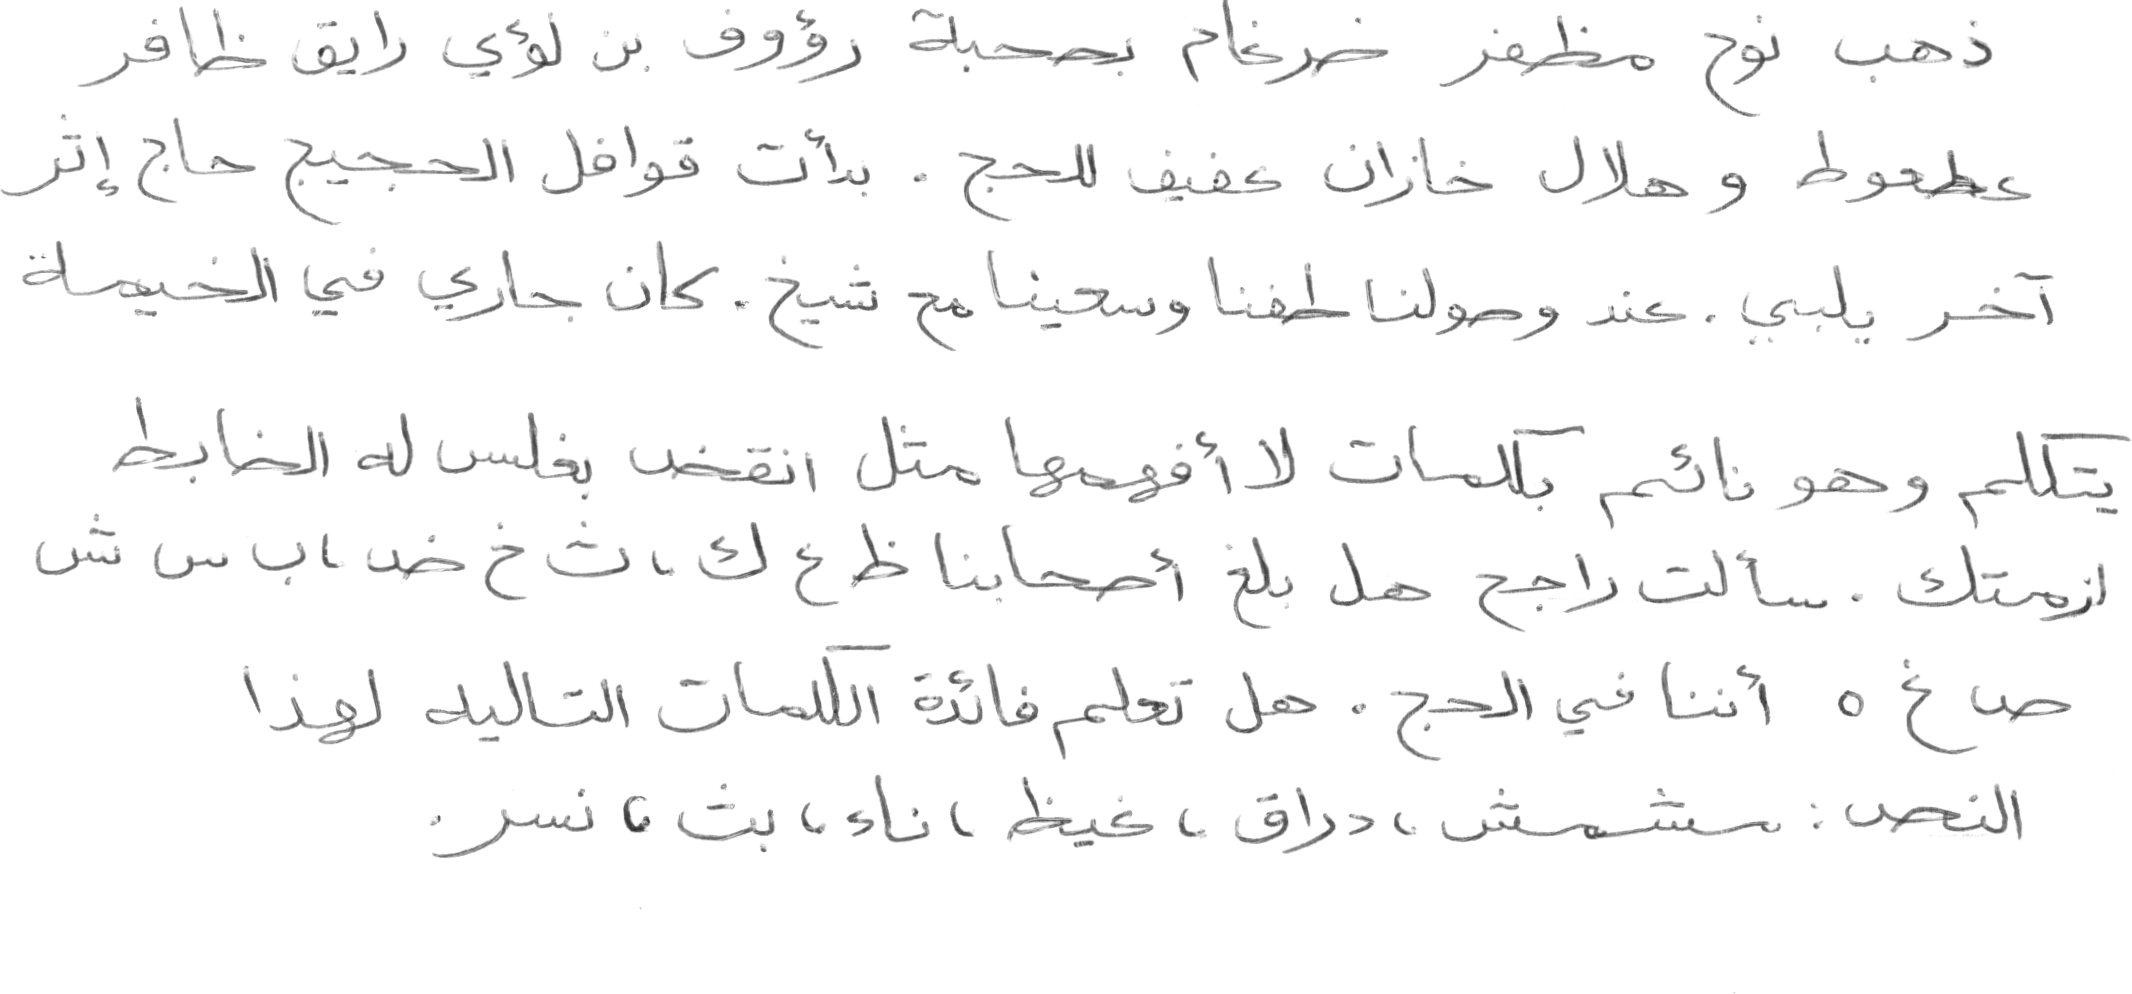 ذهب نوح مظفر ضرغام بصحبة رؤوف بن لؤي رايق ظافر
عطعوط و هلال خازن عفيف للحج . بدأت قوافل الحجيج حاج إثر
آخر يلبي . عند وصولنا طفنا وسعينا مع شيخ . كان جاري في الخيمة
يتكلم وهو نائم بكلمات لا أفهمها مثل انقض بغلس له الضابط
ازمتك . سألت راجح هل بلغ أصحابنا ظ غ ك ، ث خ ض ، ب س ش
ص غ ه أننا في الحج . هل تعلم فائدة الكلمات التاليه لهذا
النص : مشمش ، دراق ، غيظ ، ناء ، بث ، نسر .